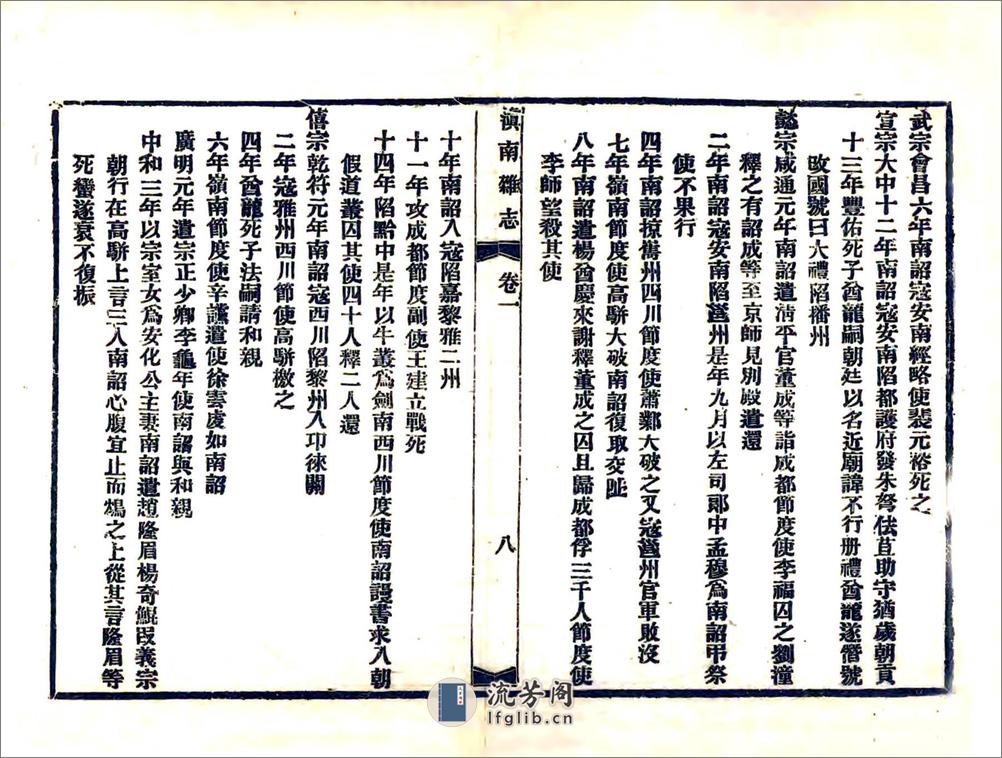 武宗會昌六年南詔寇安南經略使裴元裕死之
宣宗大中十二年南詔寇安南陷都護府發朱弩佉苴助守猶歲朝貢
十三年豐佑死子酋龍嗣朝廷以名近廟諱不行册禮酋龍遂僭號
改國號曰大禮陷播州
懿宗咸通元年南詔遣淸平官董成等詣成都節度使李福囚之劉潼
釋之有詔成等至京師見別殿遣還
二年南詔寇安南陷邕州是年九月以左司郞中孟穆爲南詔弔祭
使不果行
四年南詔掠嶲州四川節度使蕭鄴大破之又寇邕州官軍敗沒
七年嶺南節度使高駢大破南詔復取交阯
八年南詔遣楊酋慶來謝釋董成之囚且歸成都俘三千人節度使
李師望殺其使
滇南雜志
卷一
八
十年南詔入寇陷嘉黎雅二州
十一年攻成都節度副使王建立戰死
十四年陷黔中是年以牛叢爲劍南西川節度使南詔謾書求入朝
假道叢囚其使四十人釋二人還
僖宗乾符元年南詔寇西川陷黎州入卭徠關
二年寇雅州西川節使高駢檄之
四年酋龍死子法嗣請和親
六年嶺南節度使辛讜遣使徐雲虔如南詔
廣明元年遣宗正少卿李龜年使南詔與和親
中和三年以宗室女爲安化公主妻南詔遣趙隆眉楊奇鯤段義宗
朝行在高駢上言三人南詔心腹宜止而鴆之上從其言隆眉等
死蠻遂衰不復振
流芳阁
lfglib.cn